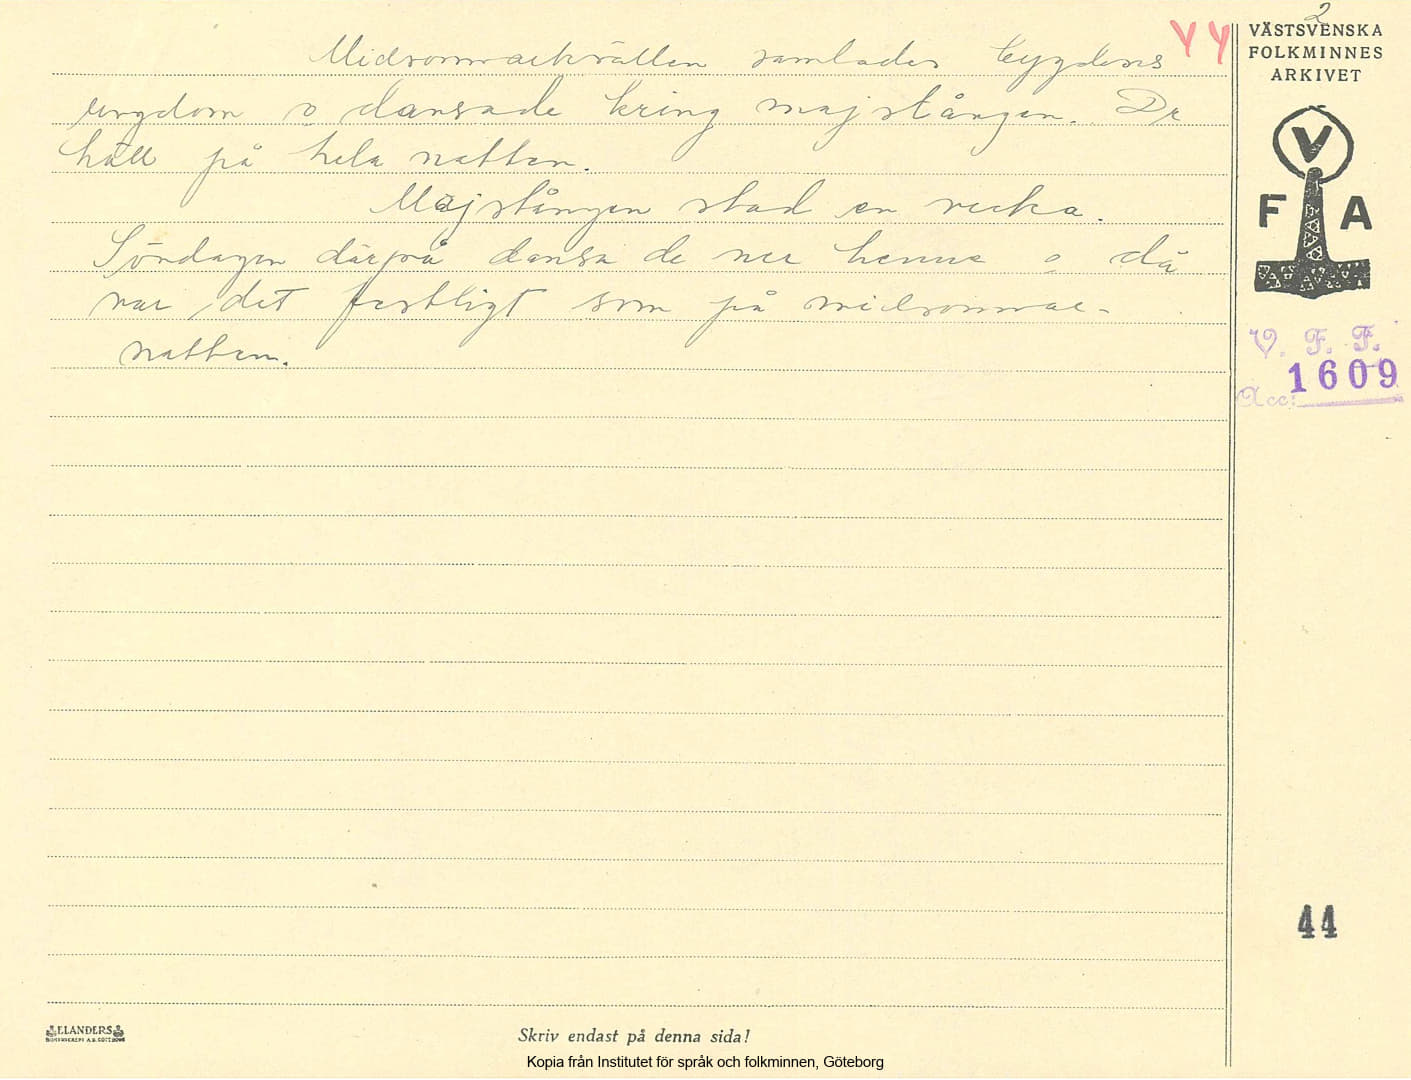 2
VÄSTSVENSKA
FOLKMINNES
ARKIVET
V
F A
V. F. F.
1609
Acc:
44
Midsommarkvällen samlades bygdens
ungdom o dansade kring majstången. De
höll på hela natten.
Majstången stod en vecka.
Söndagen därpå dansa de ner henne o då
var det festligt som på midsommar-
natten.
ELANDERS
Skriv endast på denna sida!
Kopia från Institutet för språk och folkminnen, Göteborg